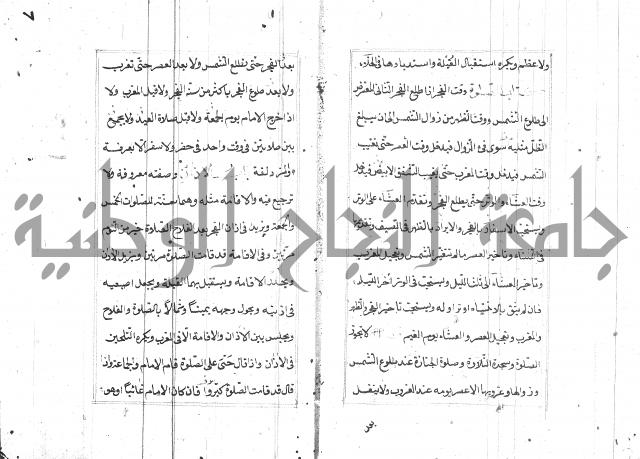 ولا عظم ويكره استقبال القبلة واستدبارها في الخلاء
الصلوة وقت الفجر اذا طلع الفجر الثاني المعترض
الى طلوع الشمس ووقت الظهر من زوال الشمس الى ان يبلغ
الظل مثليه سوى فئ الزوال فيدخل وقت العصر حتى تغيب
الشمس فيدخل وقت المغرب حتى يغيب الشفق الابيض فيدخل
وقت العشاء والوتر حتى يطلع الفجر وتقدم العشاء على الوتر
ويستحب الاسفار بالفجر والابراد بالظهر في الصيف وتقديمها
في الشتاء وتأخير العصر مالم تتغير الشمس وتعجيل المغرب
وتأخير العشاء الى ثلث الليل ويستحب في الوتر آخر الليل
فان لم يثق بالانتباه اوتر اوله ويستحب تأخير الفجر والظهر
والمغرب وتعجيل العصر والعشاء يوم الغيم لا تجوز
الصلوة وسجدة التلاوة وصلوة الجنازة عند طلوع الشمس
وزوالها وغروبها الا عصر يومه عند الغروب ولا يتنفل
بعد
٧
بعد الفجر حتى تطلع الشمس ولا بعد العصر حتى تغرب
ولا بعد طلوع الفجر باكثر من سنة الفجر ولا قبل المغرب ولا
اذا خرج الامام يوم الجمعة ولا قبل صلاة العيد ولا يجمع
بين صلاتين في وقت واحد في حضر ولا سفر الا بعرفة
والمزدلفة وصفته معروفة ولا
ترجيع فيه والاقامة مثله وهما سنة للصلوات الخمس
والجمعة ويزيد في اذان الفجر بعد الفلاح الصلوة خير من النوم
مرتين وفي الاقامة قد قامت الصلوة مرتين ويترسل الاذان
ويحدر الاقامة ويستقبل بهما القبلة ويجعل اصبعيه
في اذنيه ويحول وجهه يمينا وشمالا بالصلوة والفلاح
ويجلس بين الاذان والاقامة الا في المغرب ويكره التلحين
في الاذان واذا قال حي على الصلوة قام الامام والجماعة واذا
قال قد قامت الصلوة كبروا فان كان الامام غائبا او هو
جامعة النجاح الوطنية